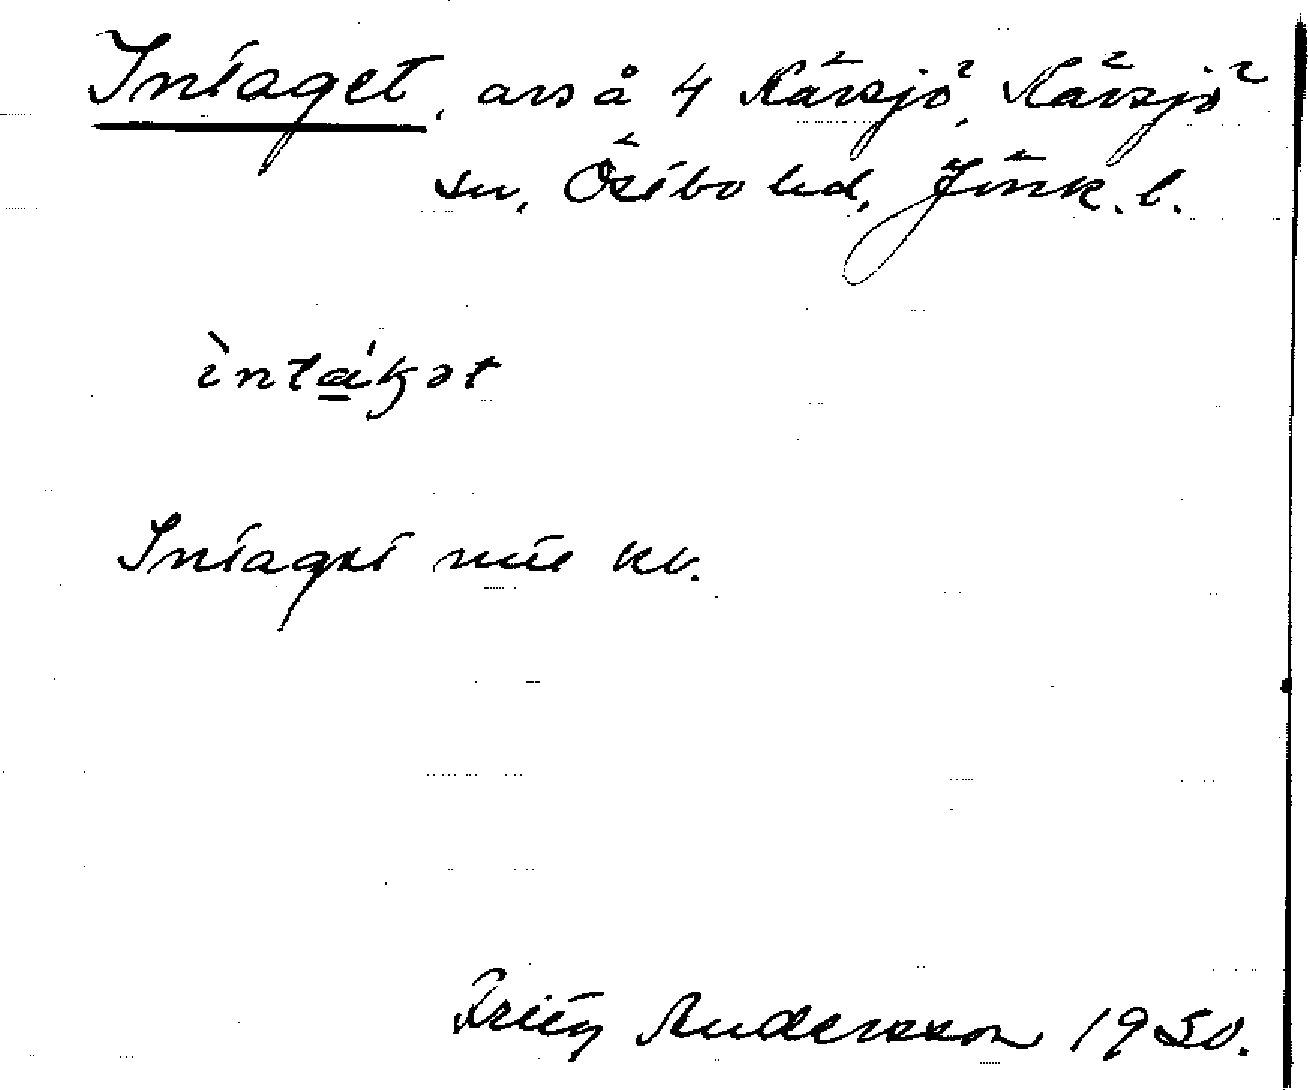 Intaget, avs å 4 Kärsjö, Kärsjö
sn, Östbo hd, Jönk. l.
ìntákət
Intaget mit kv.
Fritz Andersson 1930.